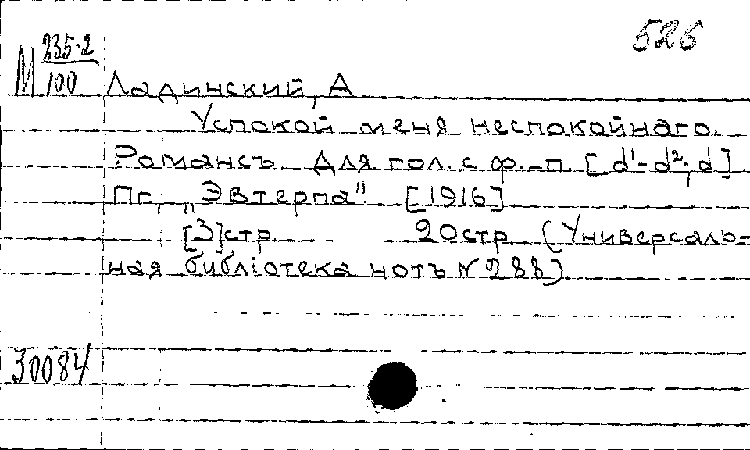 526
М 235-2/100
Ладинский, А
Успокой меня неспокойнаго.
Романсъ. Для гол. с ф.-п. [d¹-d², d]
Пг. „Эвтерпа" [1916]
[3]стр 20стр (Универсаль-
ная библіотека нотъ № 288)
30084